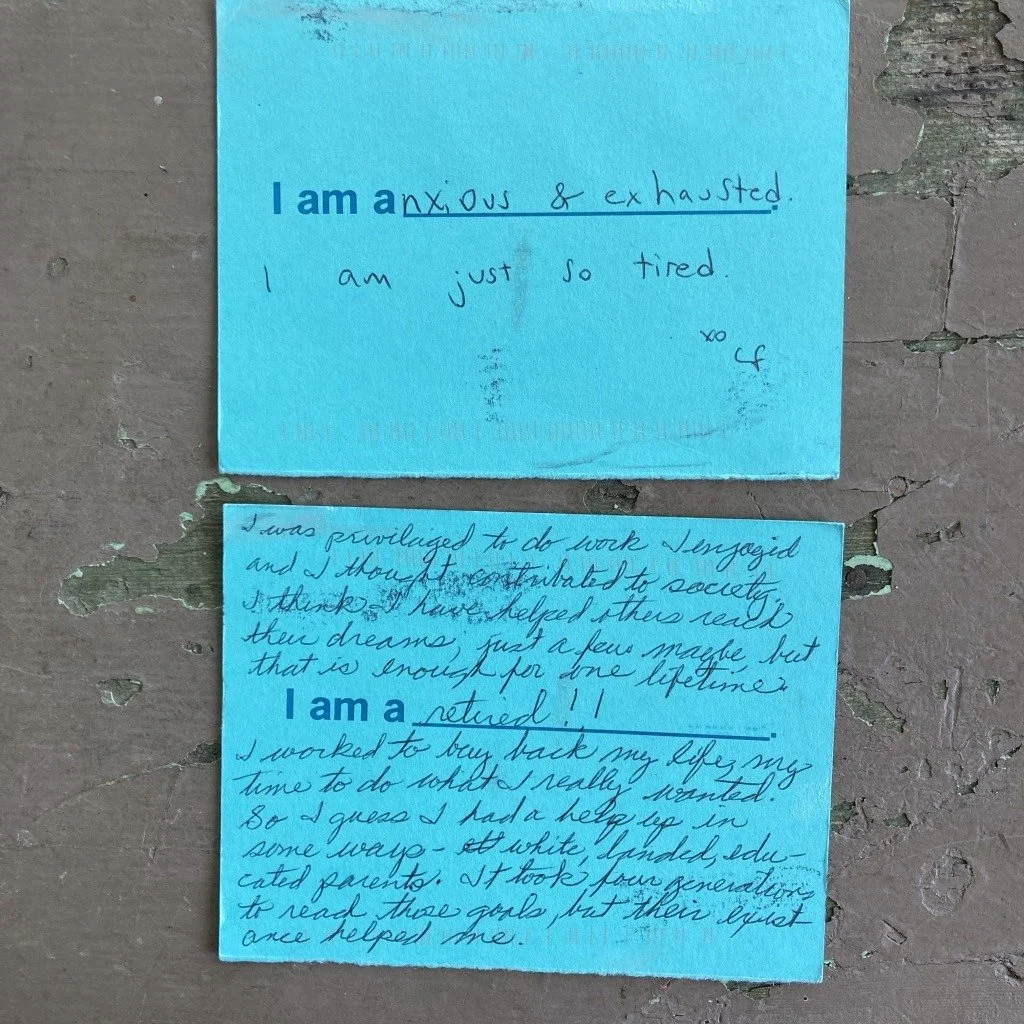 I am anxious & exhausted.
I am just so tired.
xo
I was privilaged to do work I enjogid
and I thought contributed to society.
I think I have helped others reach
their dreams, just a few maybe, but
that is enough for one lifetime.
I am a retired!!
I worked to buy back my life, my
time to do what I really wanted.
So I guess I had a help up in
some ways - white, landed, edu-
cated parents. It took four generations
to read those goals, but their exist
ance helped me.